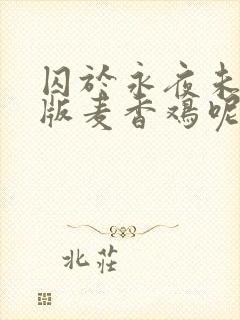 囚於永夜未
版麦香鸡呢
北莊